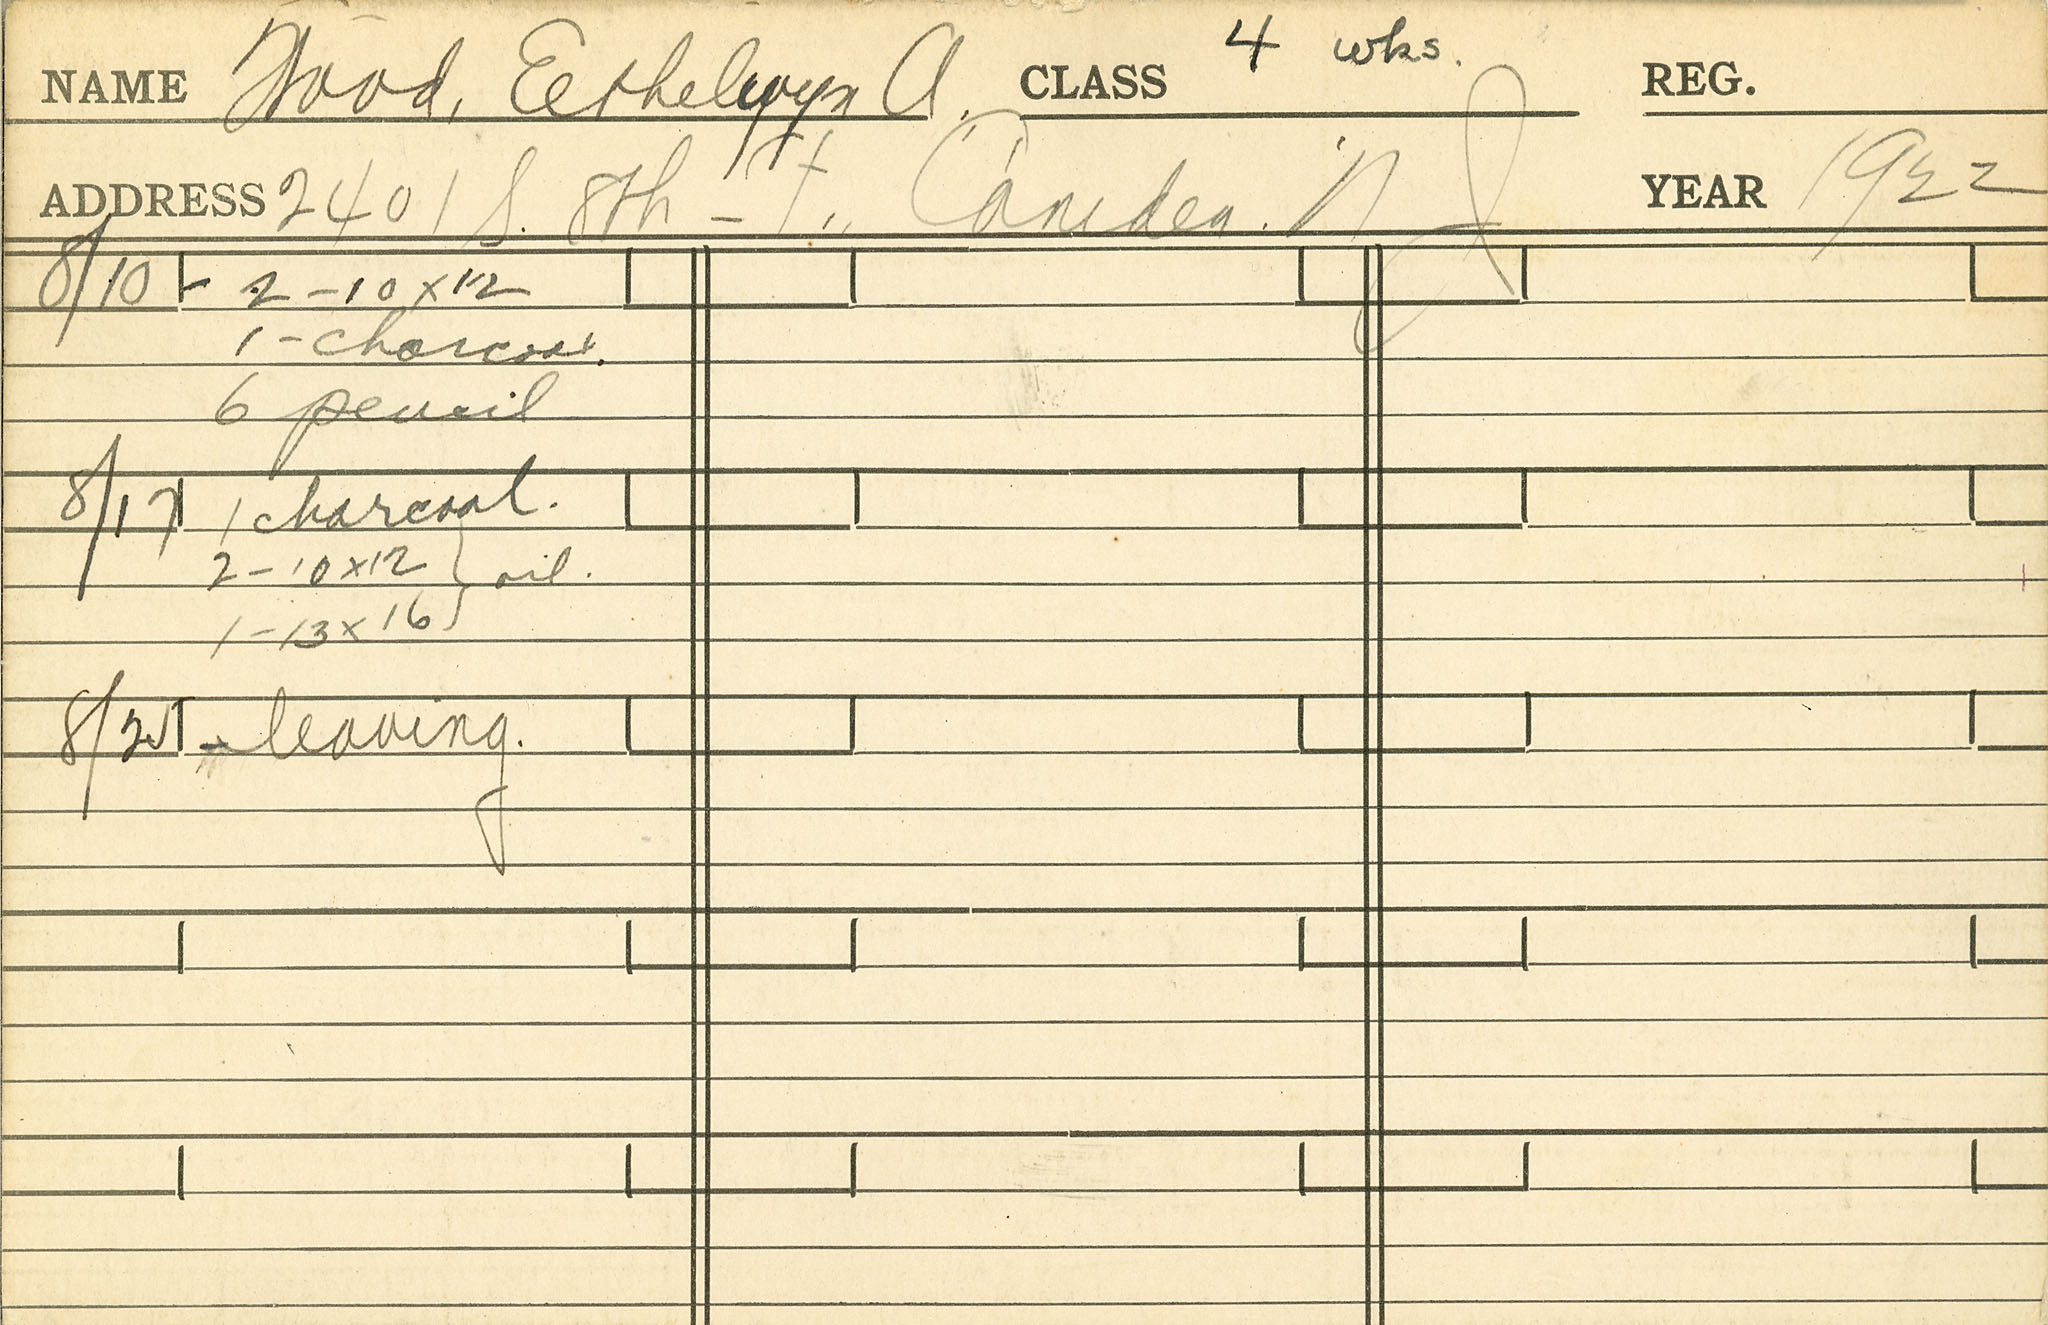 NAME Wood, Eethelwyn A. CLASS 4 wks. REG.
ADDRESS 2401 S. 8th - St., Camden. N J YEAR 1922
8/10 - 2-10x12
1-charcoal.
6 pencil
8/17 1 charcoal.
2-10x12 } oil.
1-13x16
8/25 - leaving.